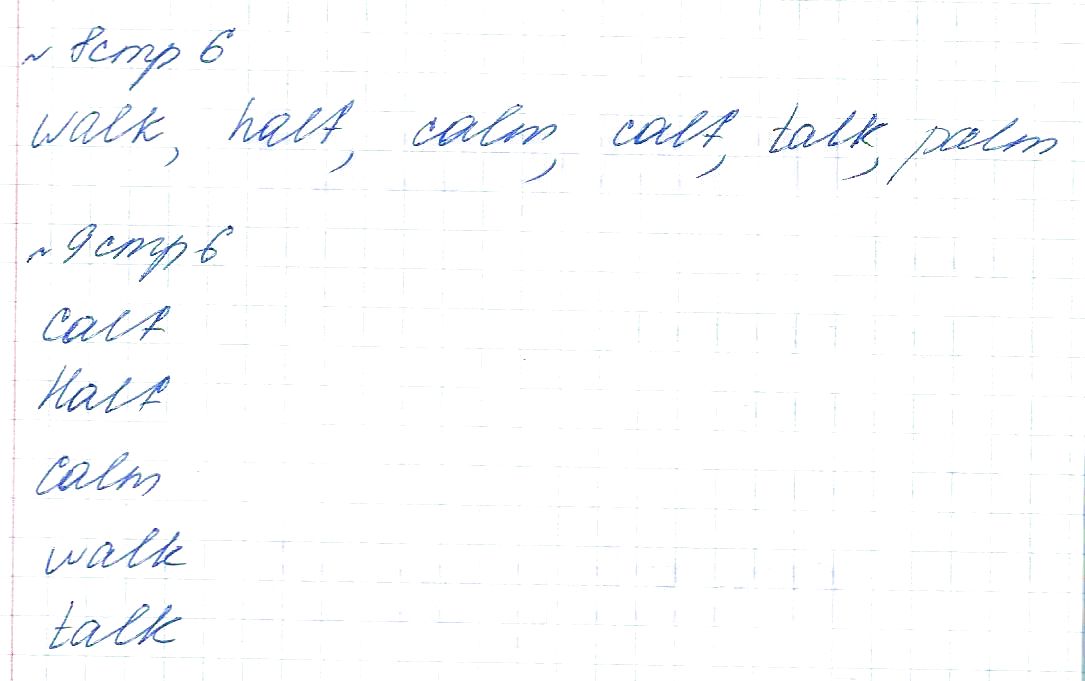 ~ 8 стр 6
walk, half, calm, calf, talk, palm
~ 9 стр 6
calf
Half
calm
walk
talk